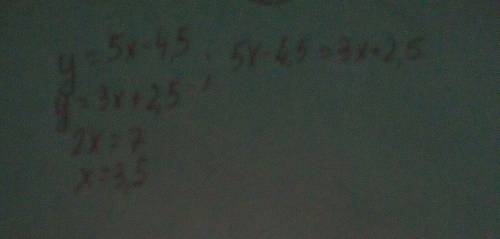 y = 5x - 4,5 ; 5x - 4,5 = 3x + 2,5
y = 3x + 2,5
2x = 7
x = 3,5